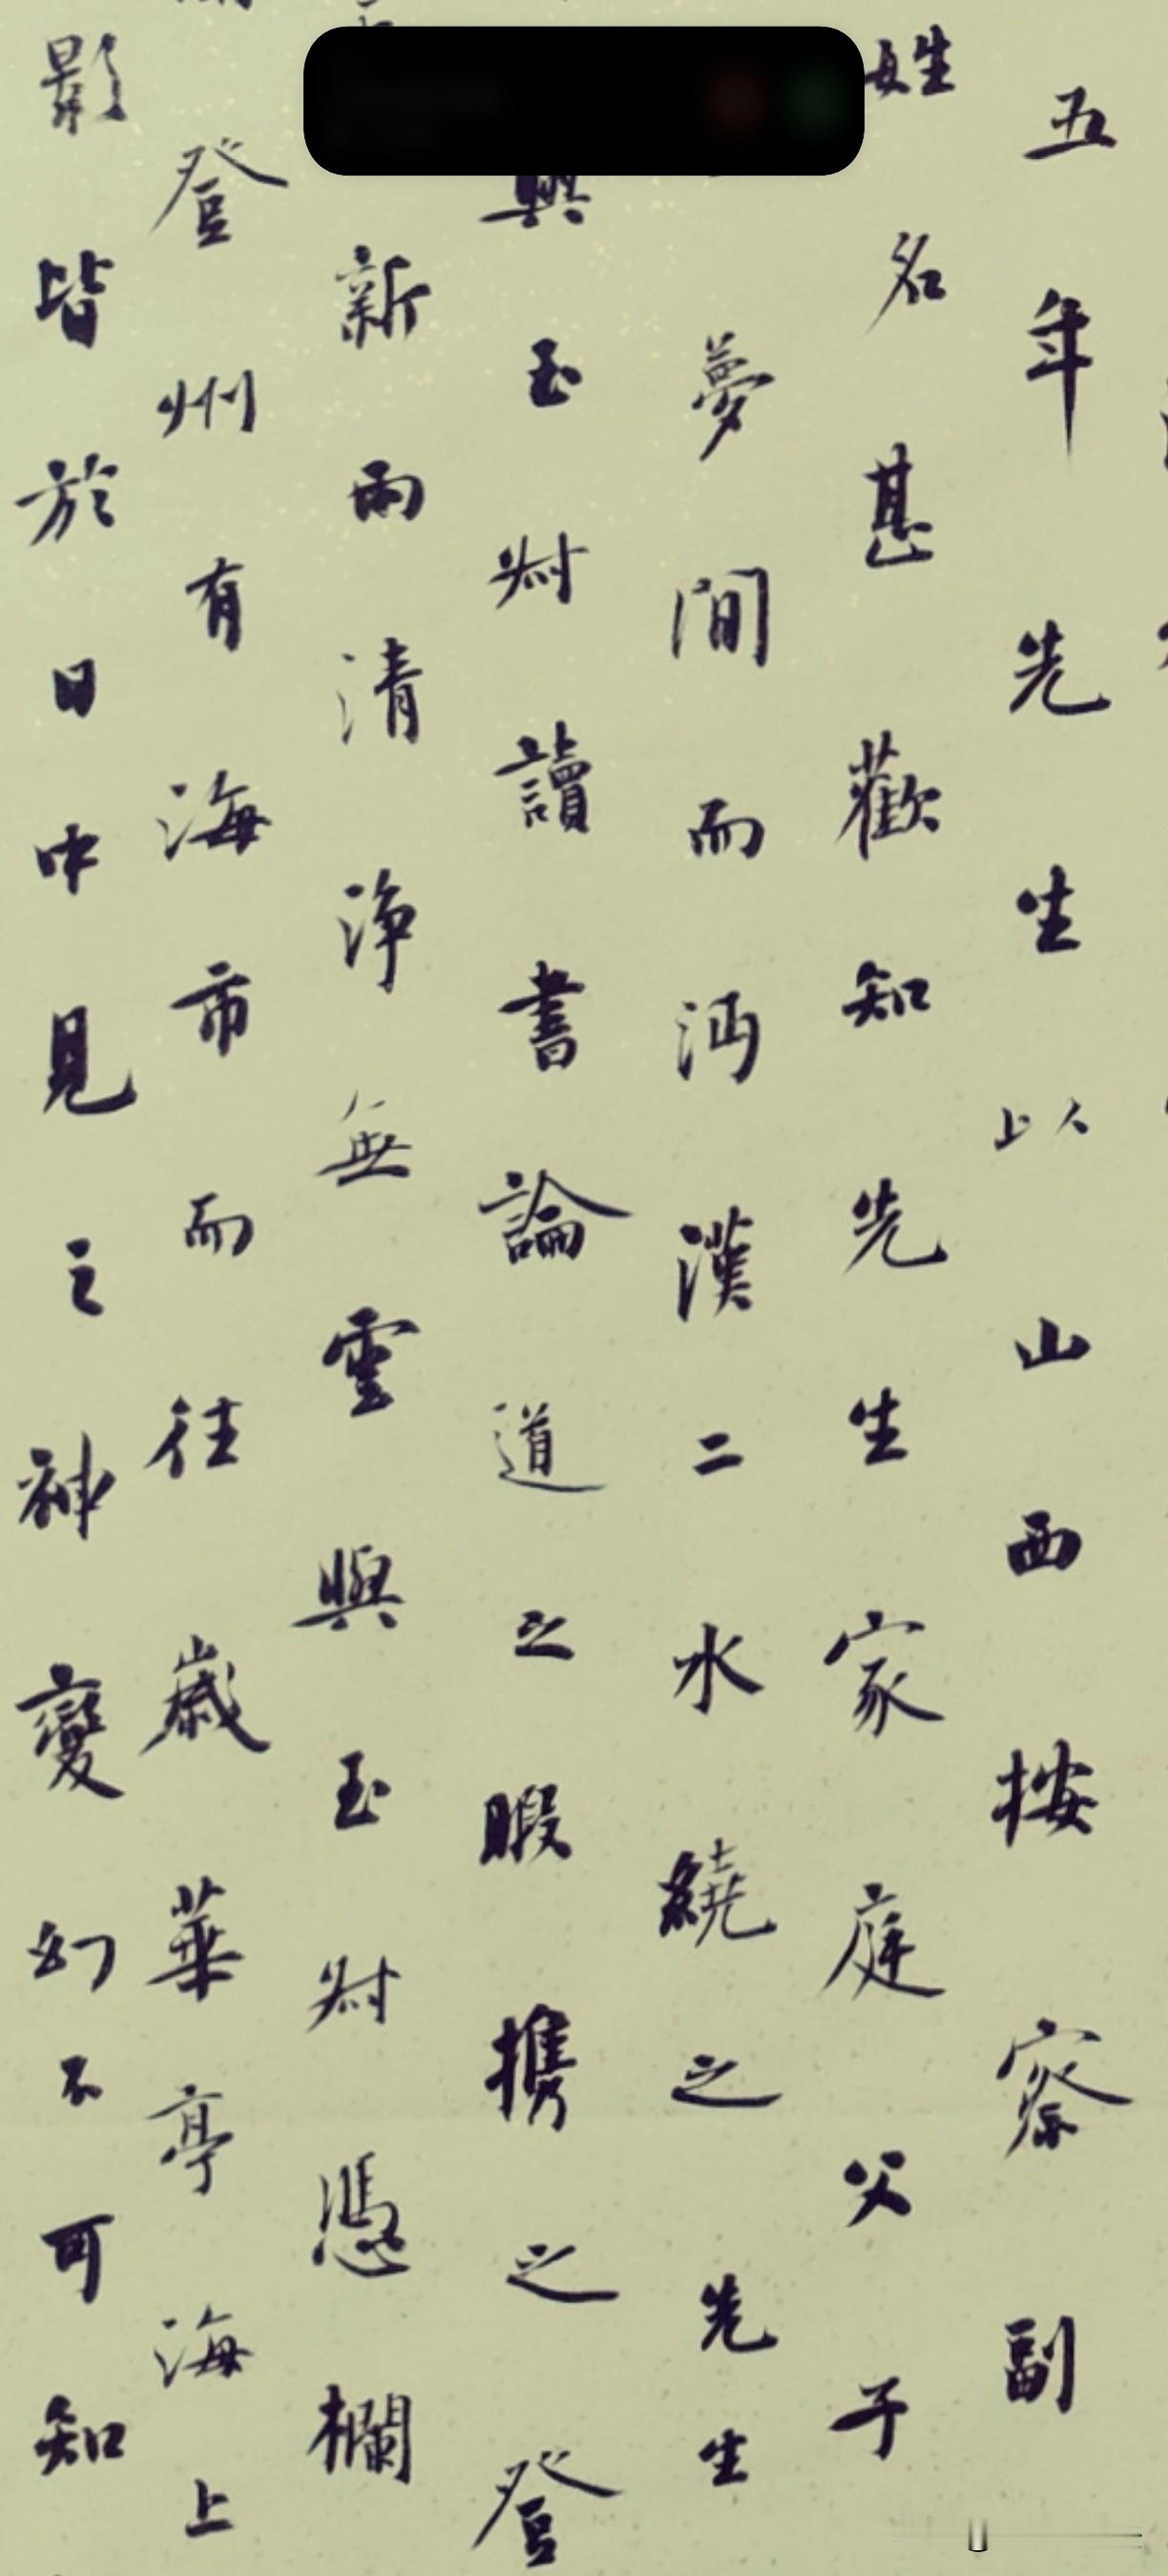 五年先生以山西按察副
姓名甚歡知先生家庭父子
夢間而沔漢二水繞之先生
與玉尌讀書論道之暇携之登
新雨清淨無雲與玉尌憑欄
登州有海市而往歲華亭海上
影皆於日中見之神變幻不可知